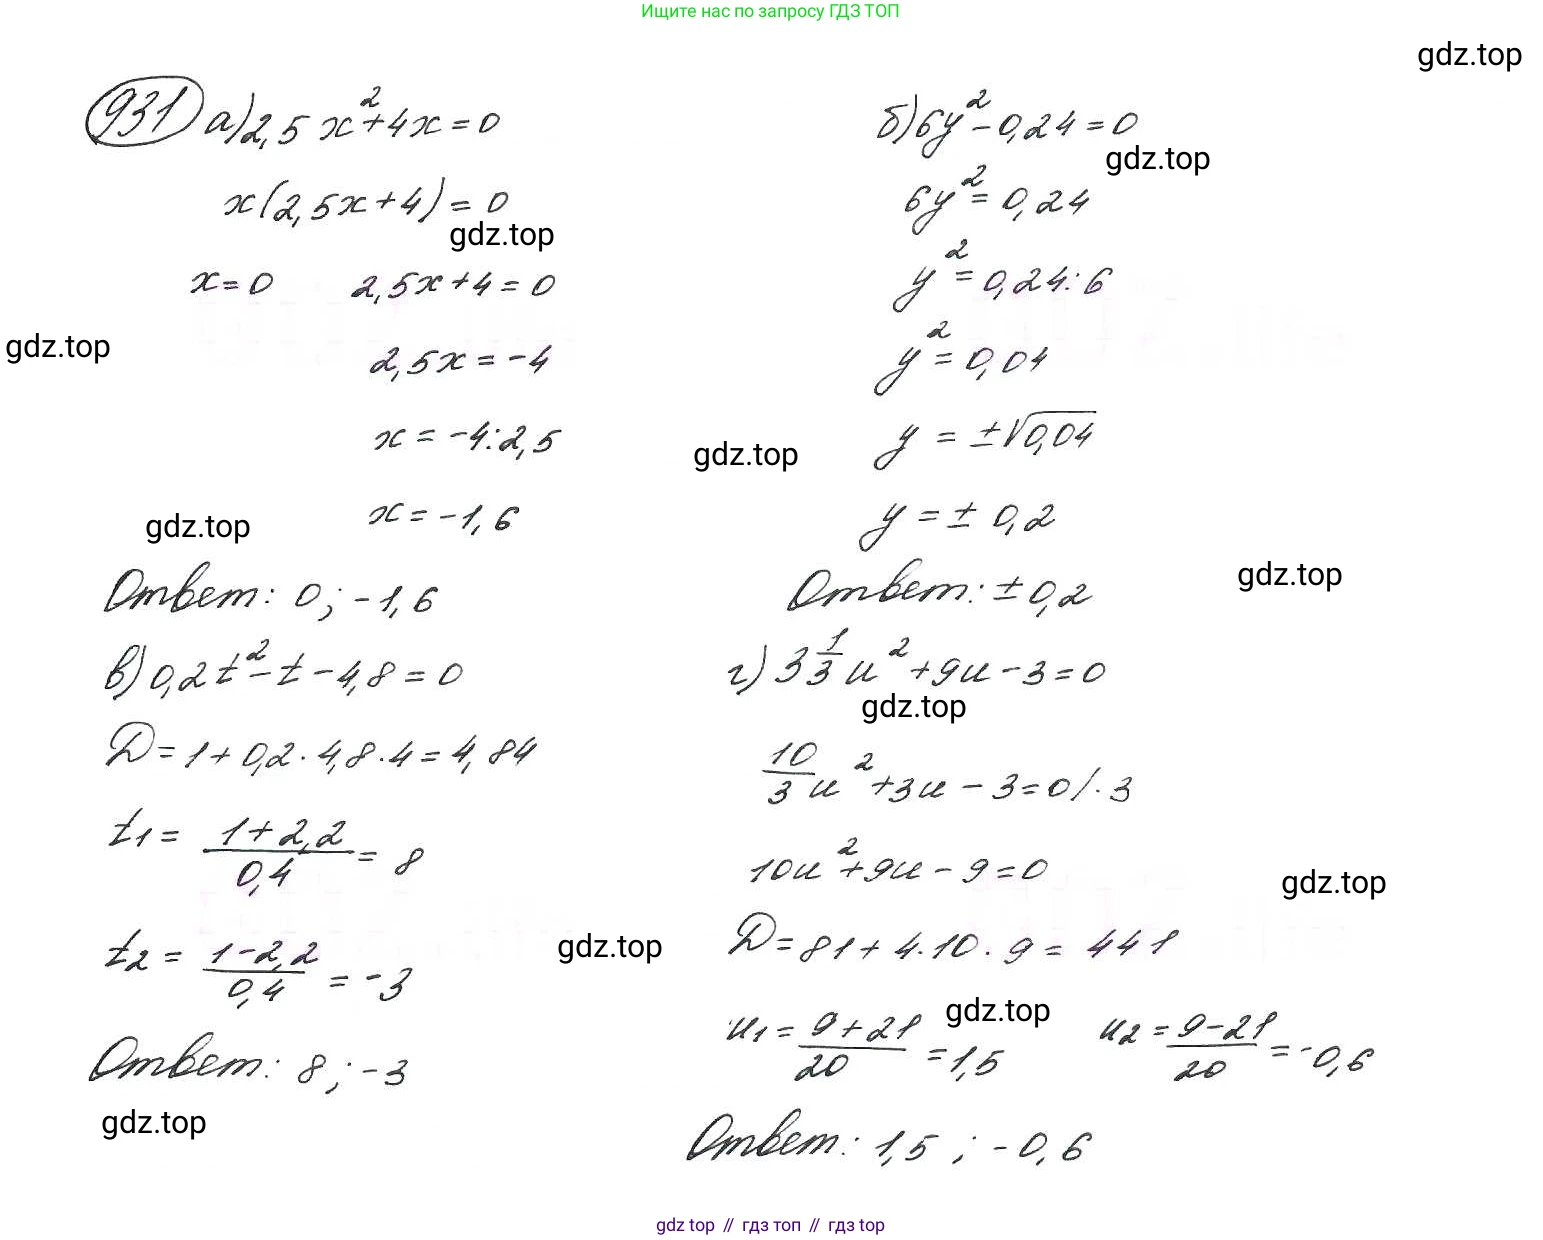 Ищите нас по запросу ГДЗ ТОП
gdz.top
931 а) 2,5x²+4x=0
x(2,5x+4)=0
gdz.top
x=0 2,5x+4=0
gdz.top
2,5x=-4
x=-4:2,5
gdz.top
x=-1,6
gdz.top
Ответ: 0; -1,6
б) 6y²-0,24=0
gdz.top
6y²=0,24
y²=0,24:6
y²=0,04
y=±√0,04
y=±0,2
gdz.top
Ответ: ±0,2
в) 0,2t²-t-4,8=0
D=1+0,2·4,8·4=4,84
t₁=(1+2,2)/0,4=8
t₂=(1-2,2)/0,4=-3
gdz.top
Ответ: 8; -3
gdz.top
г) 3 1/3 u²+9u-3=0
gdz.top
10/3 u²+3u-3=0/·3
10u²+9u-9=0
gdz.top
D=81+4·10·9=441
gdz.top
u₁=(9+21)/20=1,5 u₂=(9-21)/20=-0,6
Ответ: 1,5; -0,6
gdz top // гдз топ // gdz top